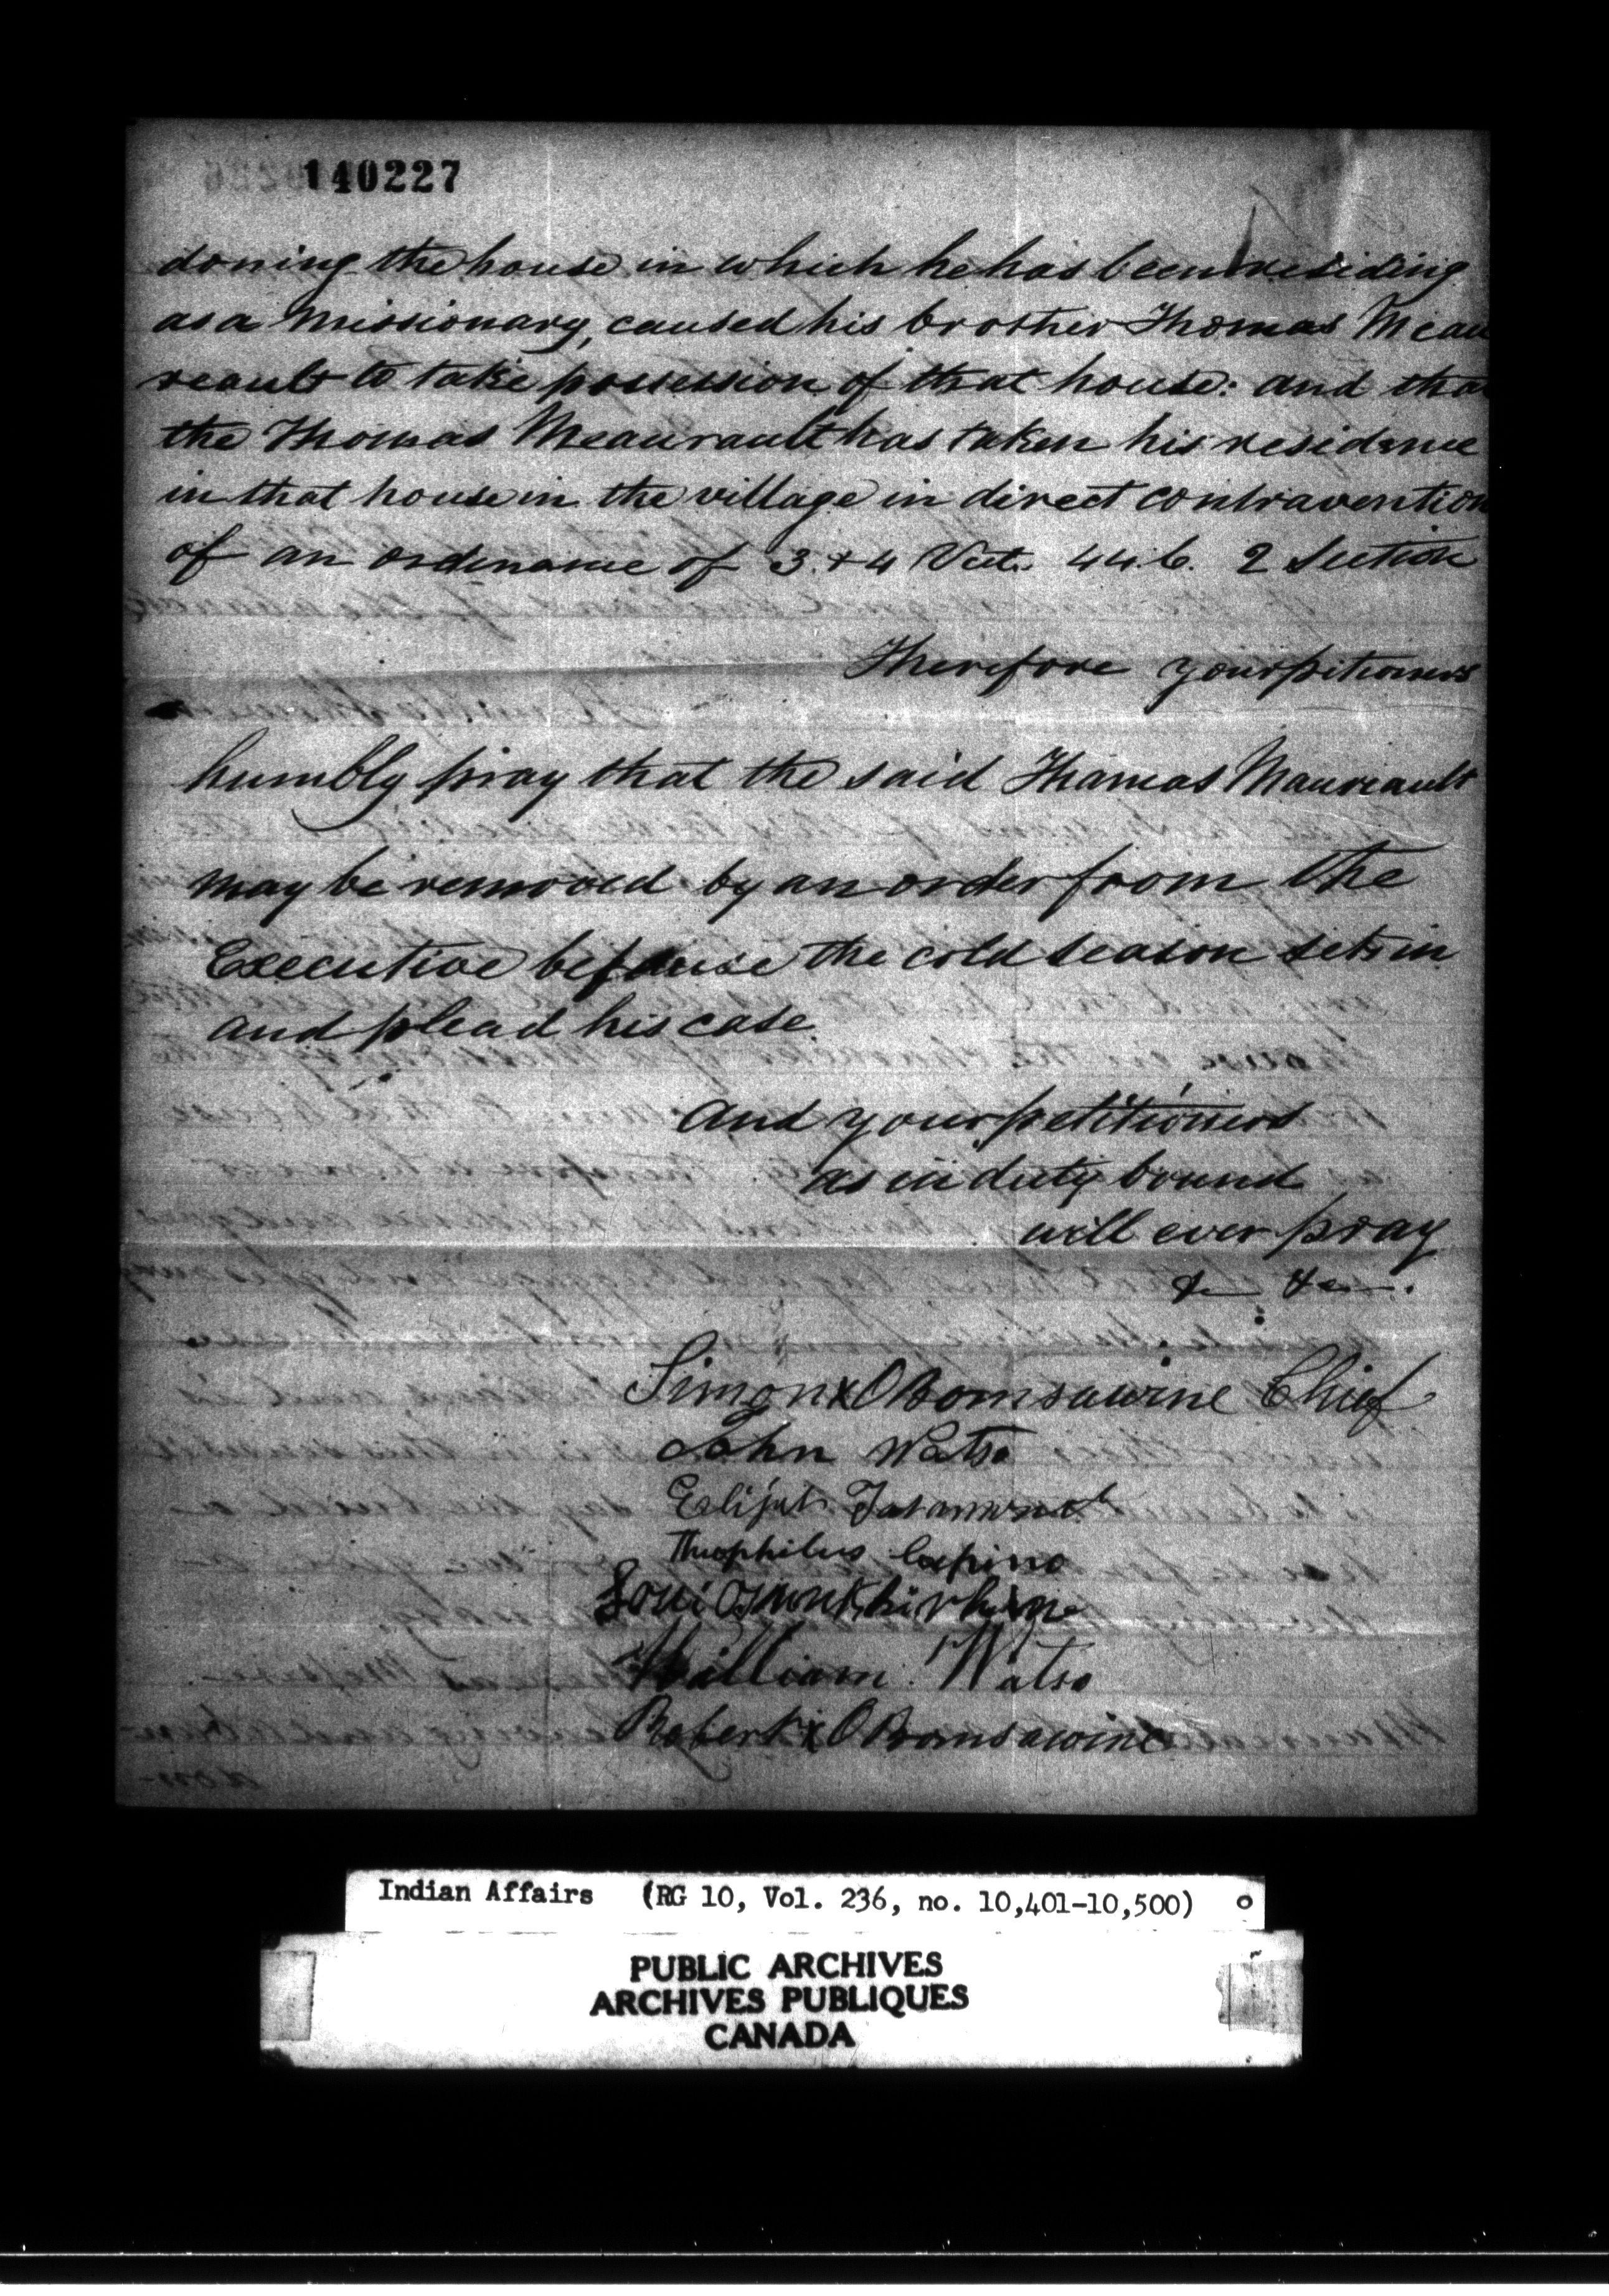 140227
doning the house in which he has been residing
as a Missionary, caused his brother Thomas Meau
reault to take possession of that house: and that
the Thomas Meaurault has taken his residence
in that house in the village in direct contravention
of an ordinance of 3 & 4 Vict. 44. C. 2 Section
Therefore your pitioners
humbly pray that the said Thomas Maureault
may be removed by an order from the
Executive before the cold season sets in
and plead his case.
and your petitioners
as in duty bound
will ever pray
&c &c.
Simon x OBomsawine Chief
John Watso
Elijah
Theophilus
William Watso
Robert x OBomsawine
Indian Affairs (RG 10, Vol. 236, no. 10,401-10,500)
PUBLIC ARCHIVES
ARCHIVES PUBLIQUES
CANADA